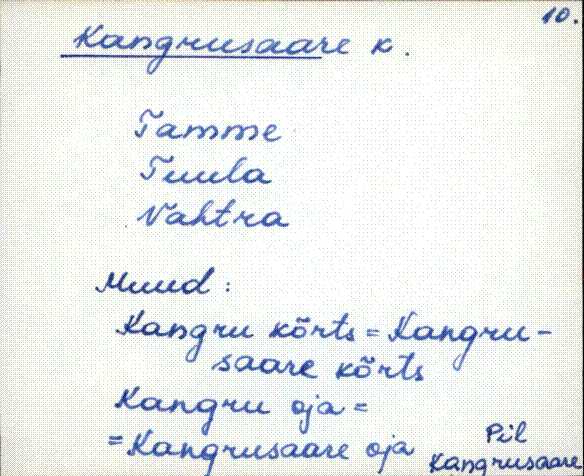 10.
Kangrusaare k.
Tamme
Tuula
Vahtra
Muud:
Kangru kõrts = Kangru-
saare kõrts
Kangru oja =
= Kangrusaare oja
Pil
Kangrusaare